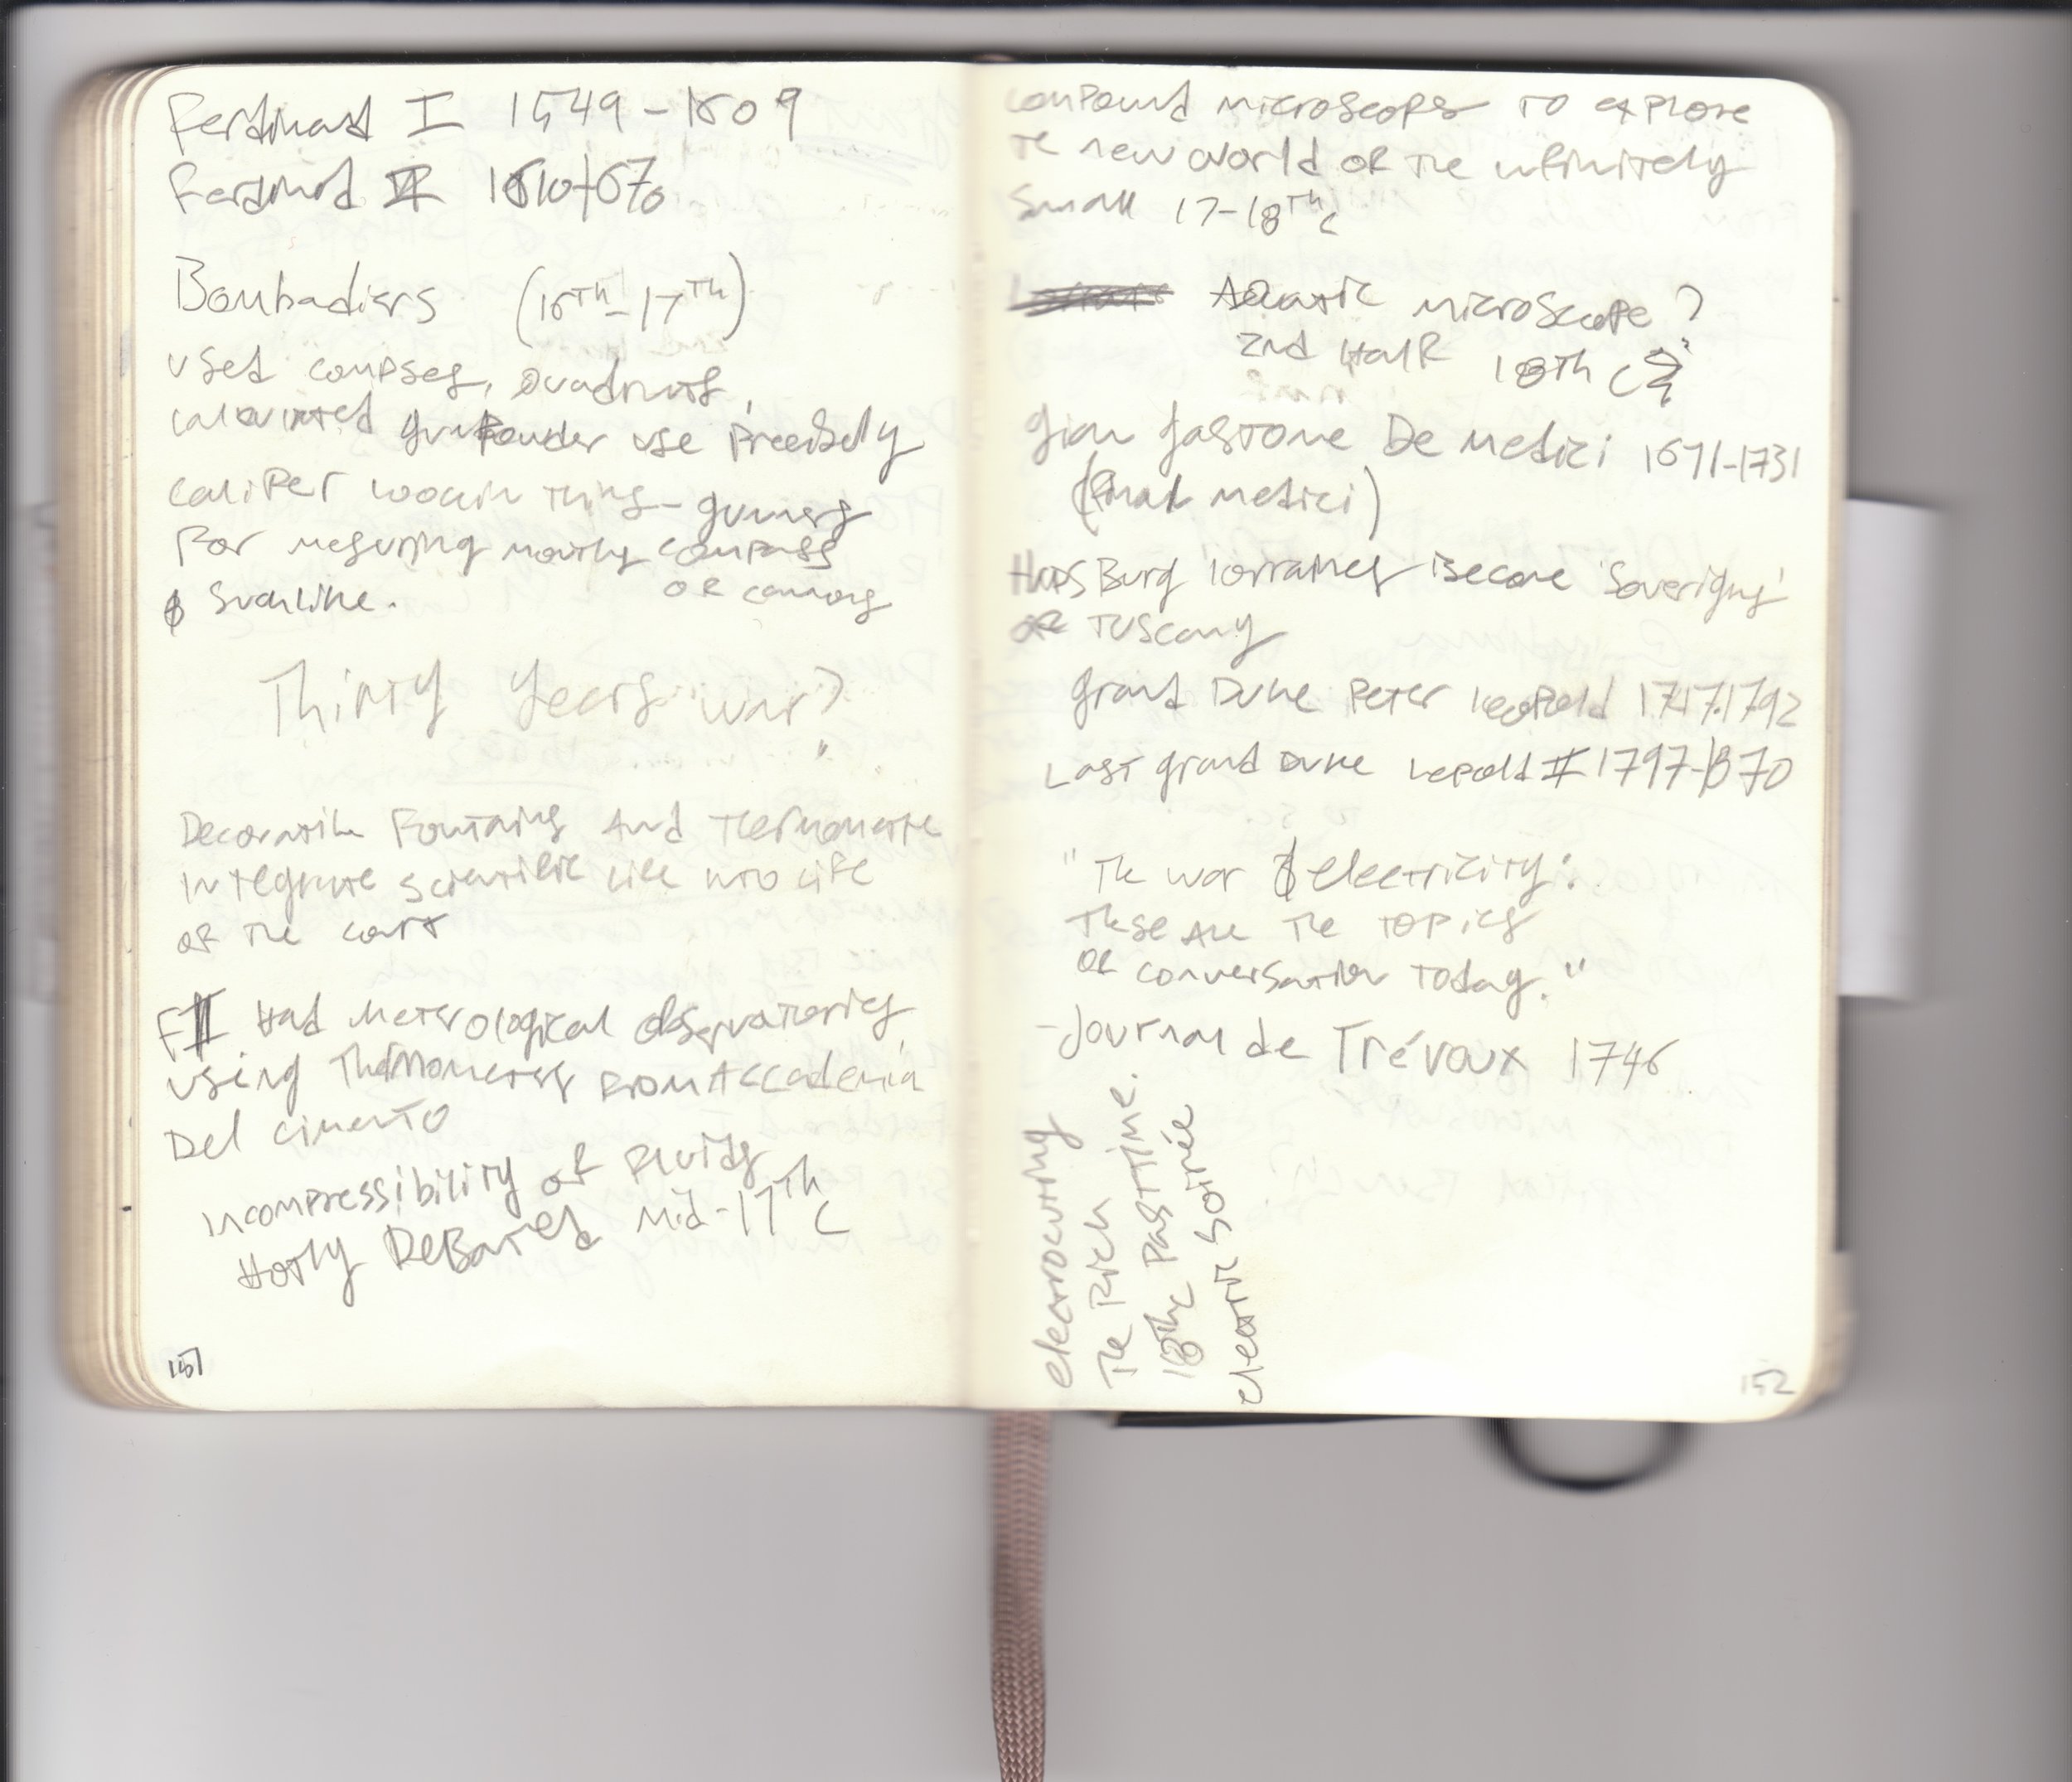 Ferdinand I 1549-1609
Ferdinand II 1610-1670
Bombadiers (16th-17th)
used compses, Quadrants,
calculated gunpowder use precisely
caliper thing - gunners
For mesuring mostly compass
& suchlike. or cannons
Thirty Years war?
Decorative Fountains and thermometre
integrate scientific life into life
of the court
FII Had Meterological observatories
using Thermometers from Accademia
Del cimento
Incompressibility of Fluids
Hotly Debated mid-17th c
151
compound microscops to explore
the new world of the infinitely
small 17-18th c
Aquatic microscope?
2nd Half 18th c?
gian gastone De Medici 1671-1731
(final medici)
HapsBurg lorraines Become 'Soverigns'
of Tuscany
grand Duke Peter leopold 1747-1792
Last grand Duke Lepold II 1797-1870
"The war & electricity:
these are the topics
of conversation today."
-Journal de Trévoux 1746
electrocuting
The Rich
18th c Pasttime.
electric Soirée
152